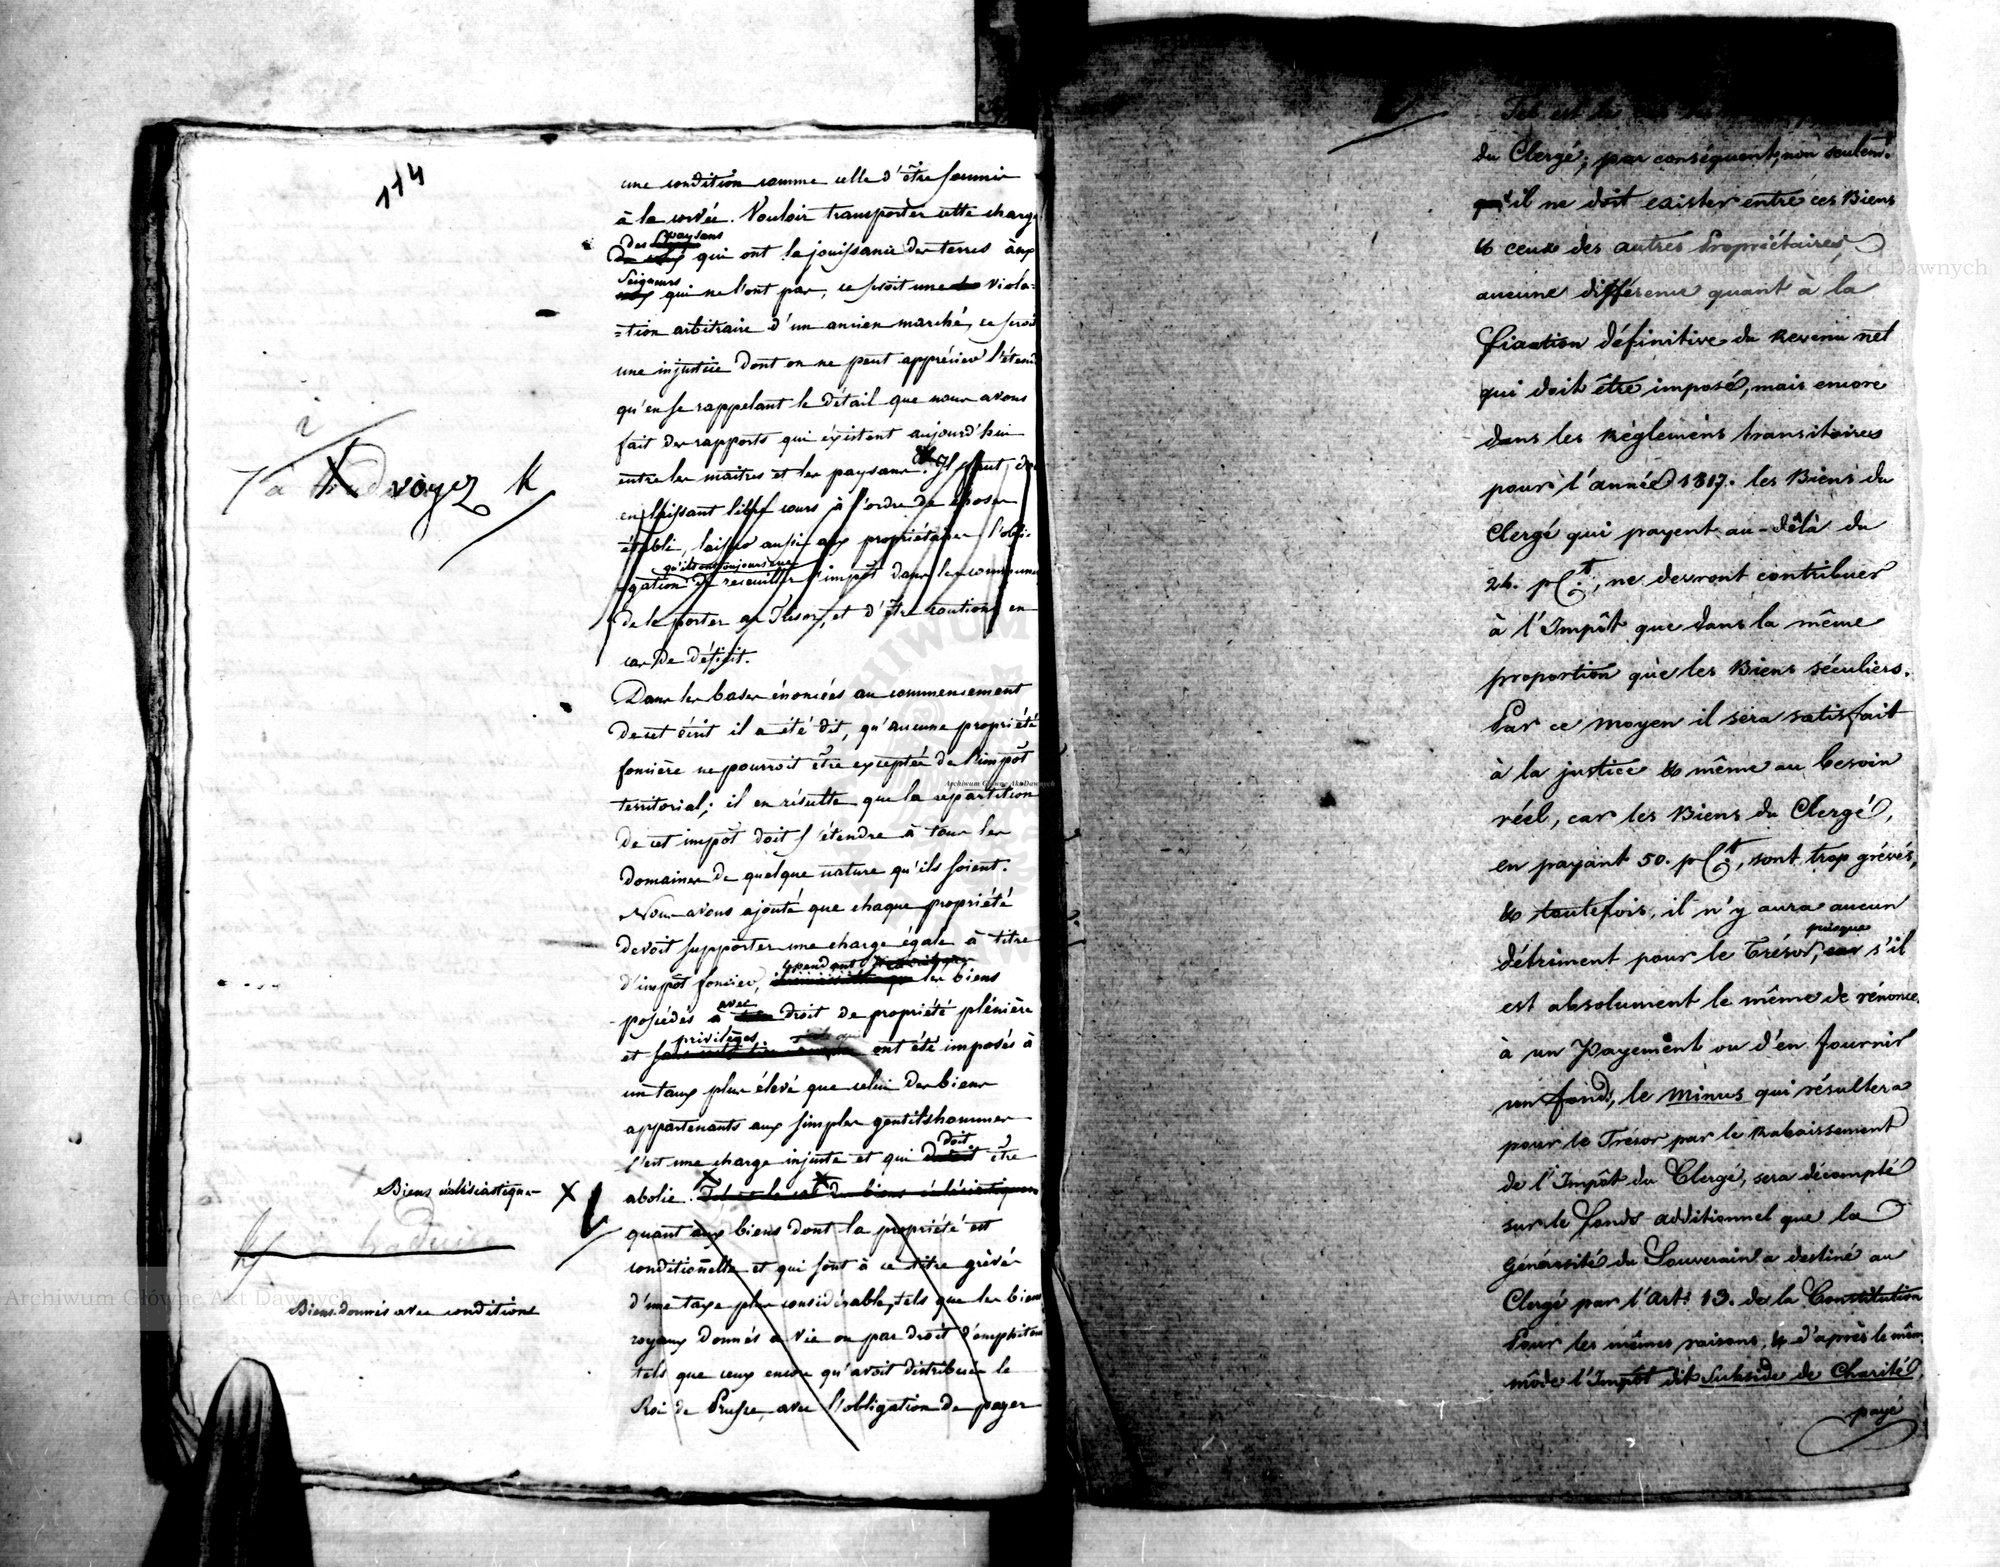 114
une condition comme celle d'être fournir
à la corvée. Vouloir transporter cette charge
des paysans
qui ont la jouissance des terres aux
Seigneurs
qui ne l'ont pas, ce seroit une viola-
-tion arbitraire d'un ancien marché, ce seroit
une injustice dont on ne peut apprécier l'étendue
qu'en se rappelant le détail que nous avons
fait des rapports qui existent aujourd'hui
entre les maitres et les paysans. Il faut donc
à voyez k
en laissant libre cours à l'ordre de choses
établi, laisser aussi aux propriétaires l'obli-
qu'ils ont toujours eue
-gation de recueillir l'impôt dans les communes
de le porter au Trésor, et d'être cautions en
cas de déficit.
Dans les bases énoncées au commencement
de cet écrit il a été dit, qu'aucune propriété
foncière ne pourroit être exceptée de l'impôt
territorial; il en résulte que la repartition
de cet impôt doit s'étendre à tous les
domaines de quelque nature qu'ils soient.
Nous avons ajouté que chaque propriété
devoit supporter une charge égale à titre
cependant
d'impôt foncier, les biens
avec
possédés à droit de propriété plénière
privilèges
et ont été imposés à
un taux plus élevé que celui des biens
appartenants aux simples gentilshommes
doit
c'est une charge injuste et qui devoit être
Biens ecclésiastiques X
abolie. Tel est le cas des biens ecclésiastiques
quant aux biens dont la propriété est
conditionelle et qui sont à ce titre grévés
à traduire
d'une taxe plus considérable, tels que les biens
Biens donnés avec conditions
royaux donnés à vie ou par droit d'emphitéose
tels que ceux encore qu'avoit distribués le
Roi de Prusse, avec l'obligation de payer
Tel est le cas des
du Clergé; par conséquent, non seulemt
qu'il ne doit exister entre ces Biens
& ceux des autres Propriétaires
aucune différence quant à la
fixation définitive du Revenu net
qui doit être imposé, mais encore
dans les Règlemens transitoires
pour l'année 1817. les Biens du
Clergé qui payent au-délà du
24. pCt, ne devront contribuer
à l'Impôt que dans la même
proportion que les Biens séculiers.
Par ce moyen il sera satisfait
à la justice & même au besoin
réel, car les Biens du Clergé,
en payant 50. pCt, sont trop grévés,
& toutefois, il n'y aura aucun
puisque
détriment pour le Trésor, car s'il
est absolument le même de rénoncer
à un Payement ou d'en fournir
un fond, le minus qui résultera
pour le Trésor par le Rabaissement
de l'Impôt du Clergé, sera décompté
sur le fonds additionnel que la
Générosité du Souverain a destiné au
Clergé par l'Art: 13. de la Constitution
Pour les mêmes raisons, & d'après le même
môde l'Impôt dit Subside de Charité,
payé
Archiwum Główne Akt Dawnych
Archiwum Główne Akt Dawnych
Archiwum Główne Akt Dawnych